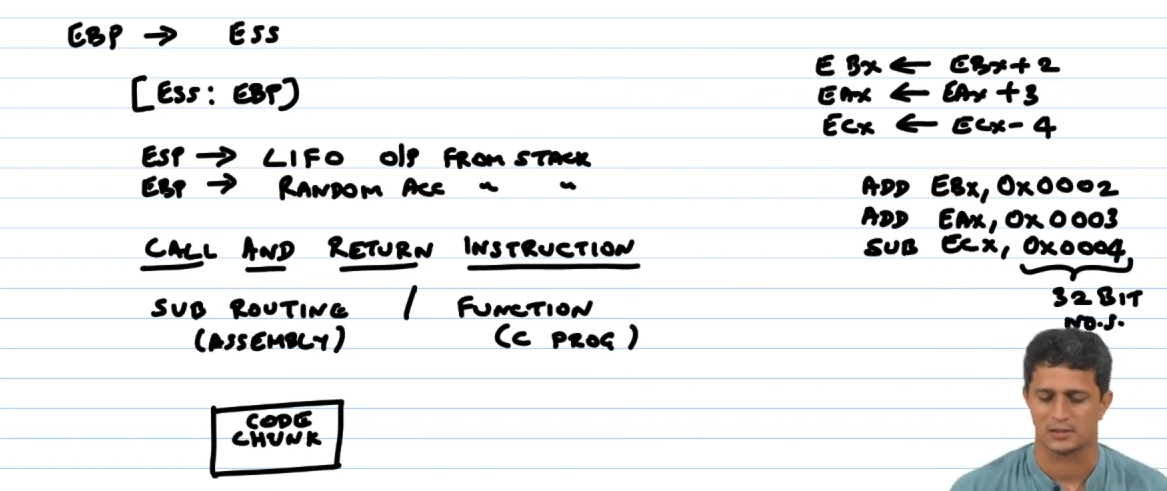 EBP → ESS
[ESS: EBP]
ESP → LIFO O/P FROM STACK
EBP → RANDOM ACC " "
CALL AND RETURN INSTRUCTION
SUB ROUTINE / FUNCTION
(ASSEMBLY) (C PROG)
CODE
CHUNK
EBX ← EBX+2
EAX ← EAX+3
ECX ← ECX-4
ADD EBX, 0X0002
ADD EAX, 0X0003
SUB ECX, 0X0004
32 BIT
NO.S.